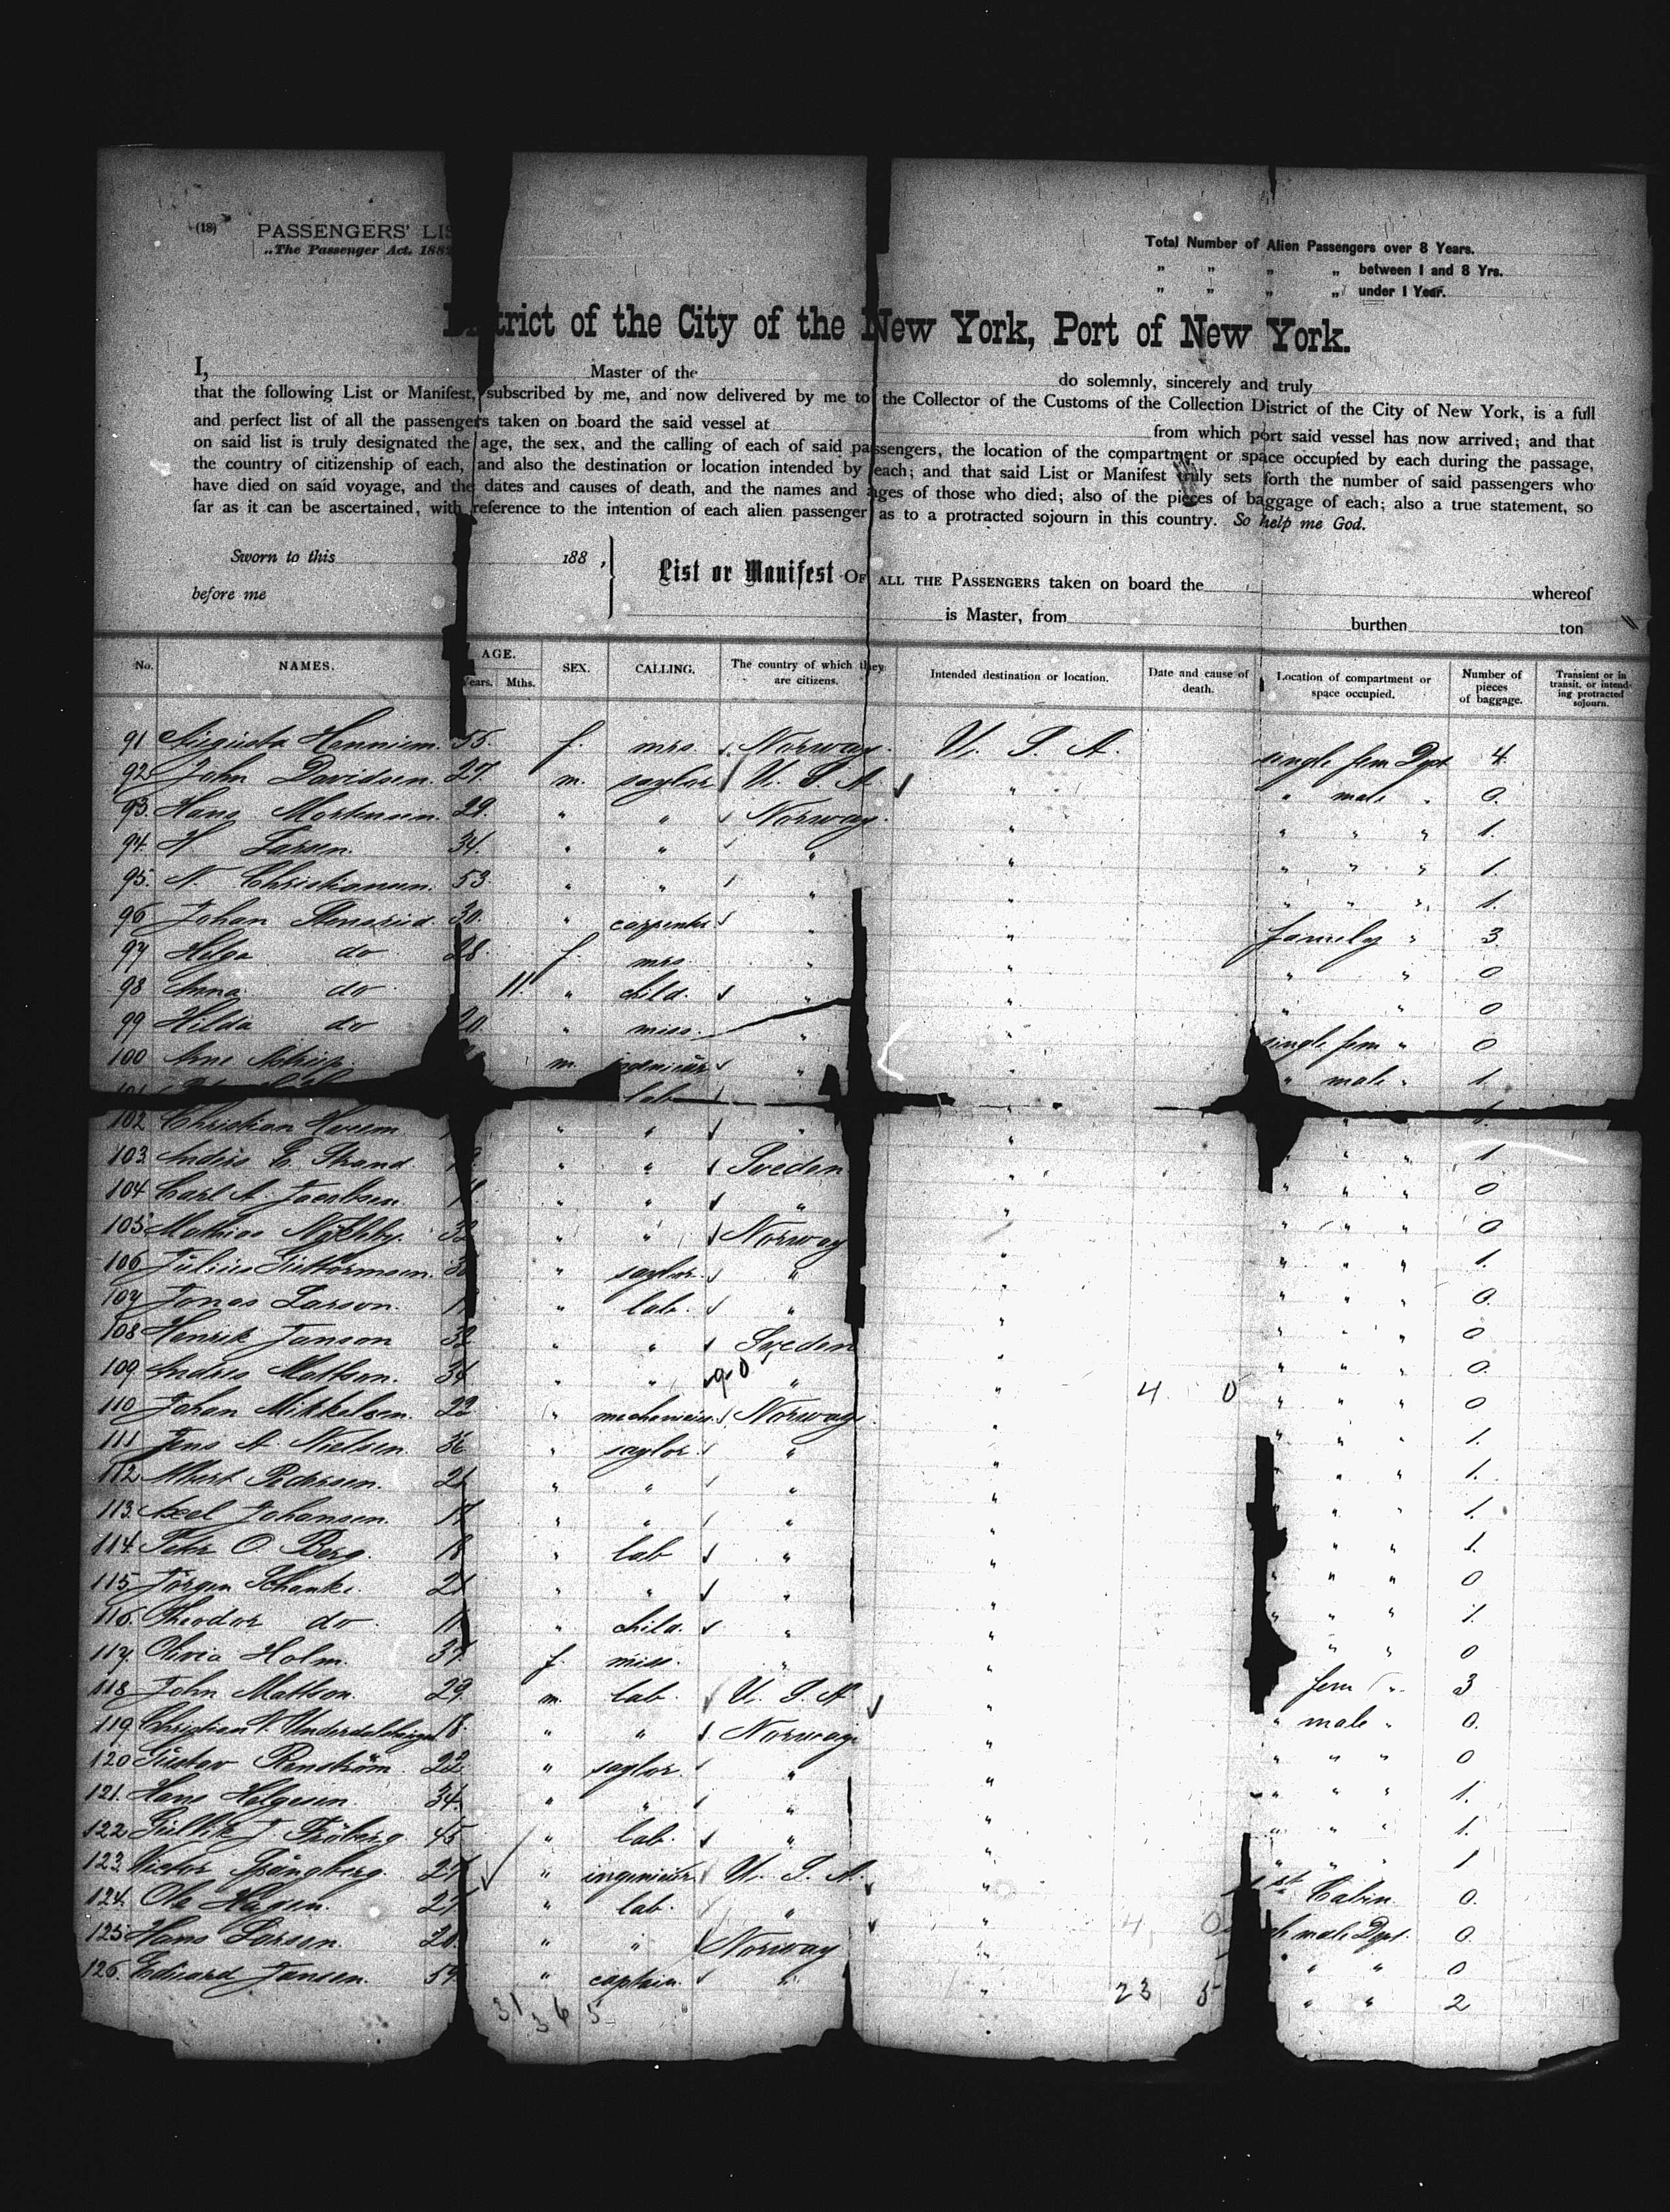 (18) PASSENGERS' LIS
„The Passenger Act, 1882
Total Number of Alien Passengers over 8 Years.
„ „ „ „ between 1 and 8 Yrs.
„ „ „ „ under 1 Year.
District of the City of the New York, Port of New York.
I, Master of the do solemnly, sincerely and truly
that the following List or Manifest, subscribed by me, and now delivered by me to the Collector of the Customs of the Collection District of the City of New York, is a full
and perfect list of all the passengers taken on board the said vessel at from which port said vessel has now arrived; and that
on said list is truly designated the age, the sex, and the calling of each of said passengers, the location of the compartment or space occupied by each during the passage,
the country of citizenship of each, and also the destination or location intended by each; and that said List or Manifest truly sets forth the number of said passengers who
have died on said voyage, and the dates and causes of death, and the names and ages of those who died; also of the pieces of baggage of each; also a true statement, so
far as it can be ascertained, with reference to the intention of each alien passenger as to a protracted sojourn in this country. So help me God.
Sworn to this 188 ,
before me
List or Manifest OF ALL THE PASSENGERS taken on board the whereof
is Master, from burthen ton
No. NAMES. AGE. Years. Mths. SEX. CALLING. The country of which they are citizens. Intended destination or location. Date and cause of death. Location of compartment or space occupied. Number of pieces of baggage. Transient or in transit, or intending protracted sojourn.
91 Augusta 55. f. mrs. Norway. U. S. A. single fem Dpt 4.
92 John Davidsen. 27. m. saylor U. S. A. " " male " 0.
93. Hans Mortensen. 29. " " Norway. " " " " 1.
94. H Larsen. 34. " " " " " " " 1.
95. N. Christiansen. 53. " " " " " " " 1.
96 Johan 30. " carpenter " " family " 3
97 Helga do 28. f. mrs. " " " " 0
98 Anna do 11. " child. " " " " 0
99 Hilda do 20. " miss. " " single fem " 0
100 Arne m. ingenieur " " " male " 1.
101 lab.
102 Christian " " " " " " "
103. Anders E. Strand " " Sweden " " " " 1
104 Carl A. Jacobsen. " " " " " " " 0
105 Mathias 32 " " Norway " " " " 0
106 Julius Guttormsen. " saylor. " " " " " 1.
107 Jonas Larson. " lab. " " " " " 0.
108 Henrik Janson 32 " " Sweden " " " " 0
109. Anders Mattson. 34 " " " " 4 0 " " " 0.
110 Johan Mikkelsen. 22 " Norway. " " " " 0
111 Jens A. Nielsen. 36 " saylor. " " " " " 1.
112. Albert Pedersen. 21 " " " " " " " 1.
113. Axel Johansen. 17 " " " " " " " 1.
114. Peder O. Berg. 18 " lab " " " " 1.
115. Jörgen Schanke. 21 " " " " " " " 0
116. Theodor do. 11 " child. " " " " " 1.
117. Olivia Holm. 37. f. miss. " " " " 0
118 John Mattson. 29. m. lab. U. S. A. " fem " 3
119. Christian N. 18. " " Norway. " " male " 0.
120 Gustav Renström. 22 " saylor. " " " " " 0
121. Hans Helgesen. 34. " " " " " " " 1.
122 45 " lab. " " " " " 1.
123. Victor Spångberg. 27 " ingenieur U. S. A. " " " " 1
124. Ola Hagen. 27. " lab. " " 1st Cabin. 0.
125. Hans Larsen. 20. " " Norway " 4 0 male Dpt. 0.
126. Edvard Jansen. 57. " captain. " " " " 0
31 3 6 5 23 5 " " 2